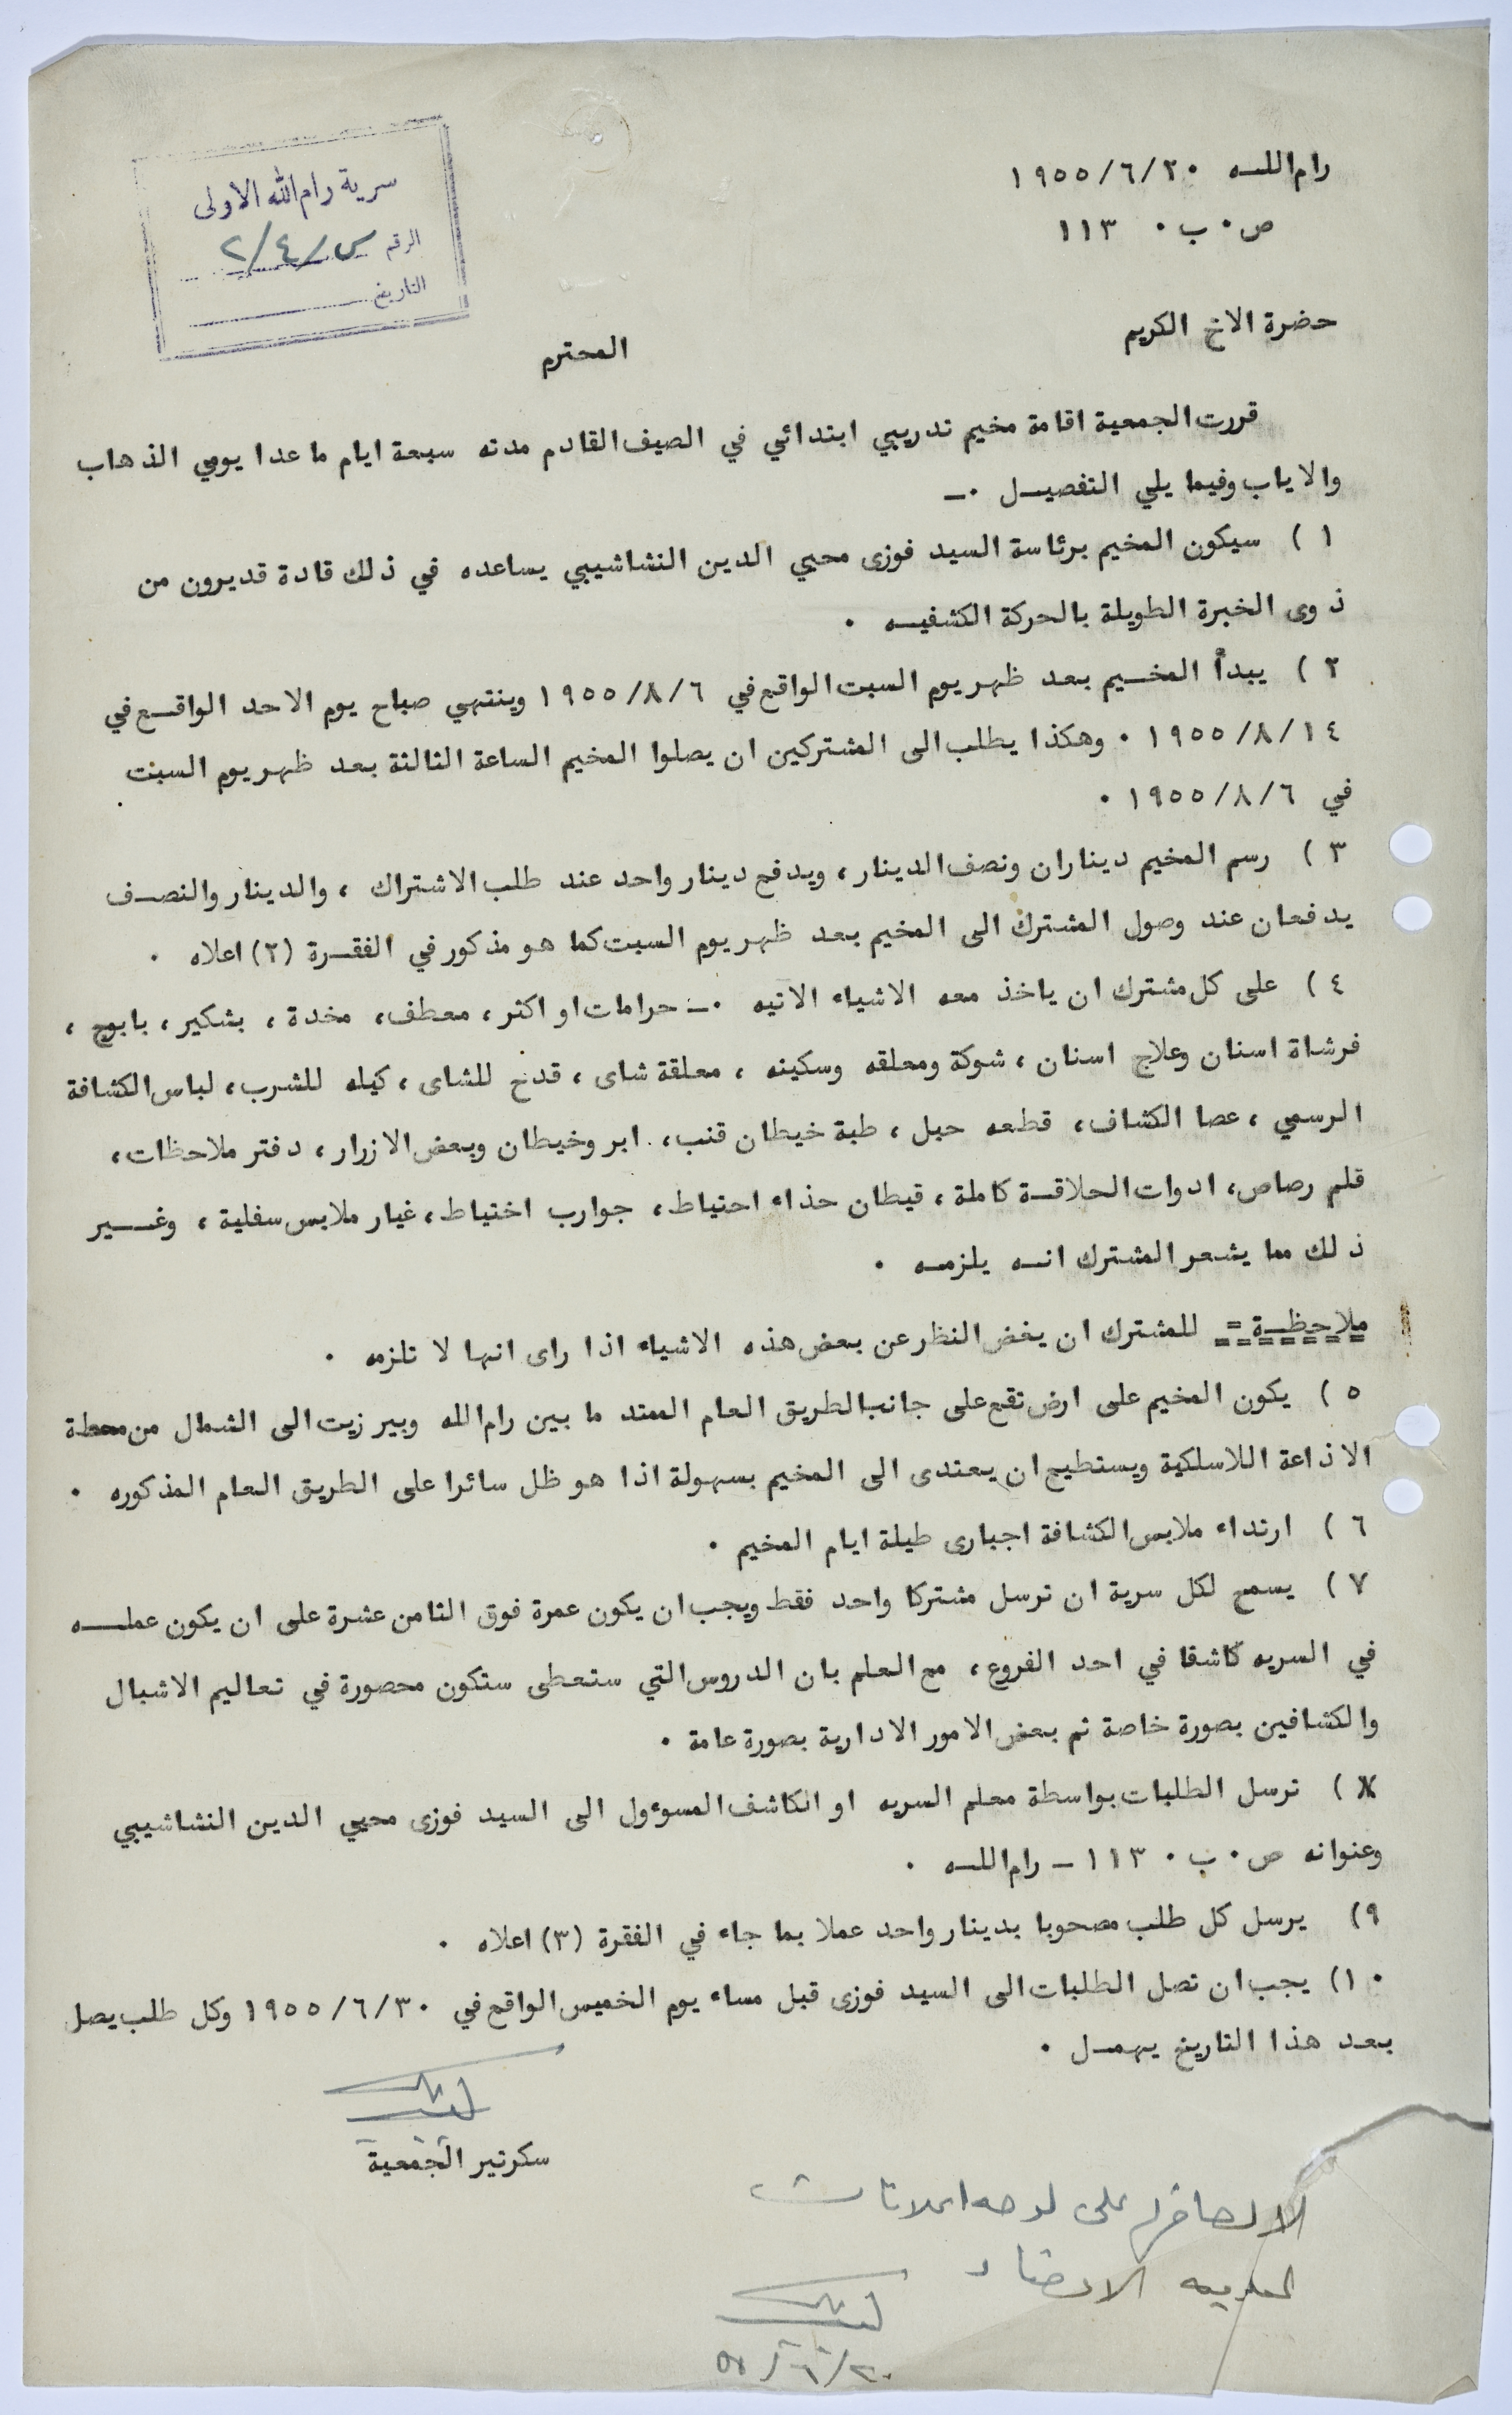 رام اللـه ٢٠/٦/١٩٥٥
ص٠ب٠ ١١٣
سرية رام الله الاولى
الرقم س/٤/٢
التاريخ
حضرة الاخ الكريم
المحترم
قررت الجمعية اقامة مخيم تدريبي ابتدائي في الصيف القادم مدته سبعة ايام ما عدا يومي الذهاب
والاياب وفيما يلي التفصيـل ٠ـ
١ ) سيكون المخيم برئاسة السيد فوزى محيي الدين النشاشيبي يساعده في ذلك قادة قديرون من
ذوى الخبرة الطويلة بالحركة الكشفيـه ٠
٢ ) يبدأ المخـيم بعد ظهر يوم السبت الواقع في ٦/٨/١٩٥٥ وينتهي صباح يوم الاحد الواقـع في
١٤/٨/١٩٥٥ ٠ وهكذا يطلب الى المشتركين ان يصلوا المخيم الساعة الثالثة بعد ظهر يوم السبت
في ٦/٨/١٩٥٥ ٠
٣ ) رسم المخيم ديناران ونصف الدينار ، ويدفع دينار واحد عند طلب الاشتراك ، والدينار والنصـف
يدفعان عند وصول المشترك الى المخيم بعد ظهر يوم السبت كما هو مذكور في الفقـرة (٢) اعلاه ٠
٤ ) على كل مشترك ان ياخذ معه الاشياء الاتيه ٠ـ حرامات او اكثر ، معطف ، مخدة ، بشكير ، بابوج ،
فرشاة اسنان وعلاج اسنان ، شوكة ومعلقه وسكينه ، معلقة شاى ، قدح للشاى ، كيله للشرب ، لباس الكشافة
الرسمي ، عصا الكشاف ، قطعه حبل ، طبة خيطان قنب ، ابر وخيطان وبعض الازرار ، دفتر ملاحظات ،
قلم رصاص ، ادوات الحلاقـة كاملة ، قيطان حذاء احتياط ، جوارب اختياط ، غيار ملابس سفلية ، وغـير
ذلك مما يشعر المشترك انـه يلزمـه ٠
ملاحظـة = للمشترك ان يغض النظر عن بعض هذه الاشياء اذا راى انها لا تلزمه ٠
٥ ) يكون المخيم على ارض تقع على جانب الطريق العام الممتد ما بين رام الله وبير زيت الى الشمال من محطة
الاذاعة اللاسلكية ويستطيع ان يهتدى الى المخيم بسهولة اذا هو ظل سائرا على الطريق العام المذكوره ٠
٦ ) ارتداء ملابس الكشافة اجبارى طيلة ايام المخيم ٠
٧ ) يسمح لكل سرية ان ترسل مشتركا واحد فقط ويجب ان يكون عمرة فوق الثامن عشرة على ان يكون عملـه
في السريه كاشفا في احد الفروع ، مع العلم بان الدروس التي ستعطى ستكون محصورة في تعاليم الاشبال
والكشافين بصورة خاصة ثم بعض الامور الادارية بصورة عامة ٠
٨ ) ترسل الطلبات بواسطة معلم السريه او الكاشف المسوءول الى السيد فوزى محيي الدين النشاشيبي
وعنوانه ص٠ب٠ ١١٣ ـ رام اللـه ٠
٩) يرسل كل طلب مصحوبا بدينار واحد عملا بما جاء في الفقرة (٣) اعلاه ٠
١٠) يجب ان تصل الطلبات الى السيد فوزى قبل مساء يوم الخميس الواقع في ٣٠/٦/١٩٥٥ وكل طلب يصل
بعد هذا التاريخ يهمـل ٠
سكرتير الجمعية
على لوحه اعلانات
الاعضاء
٢٠/٦/٥٥